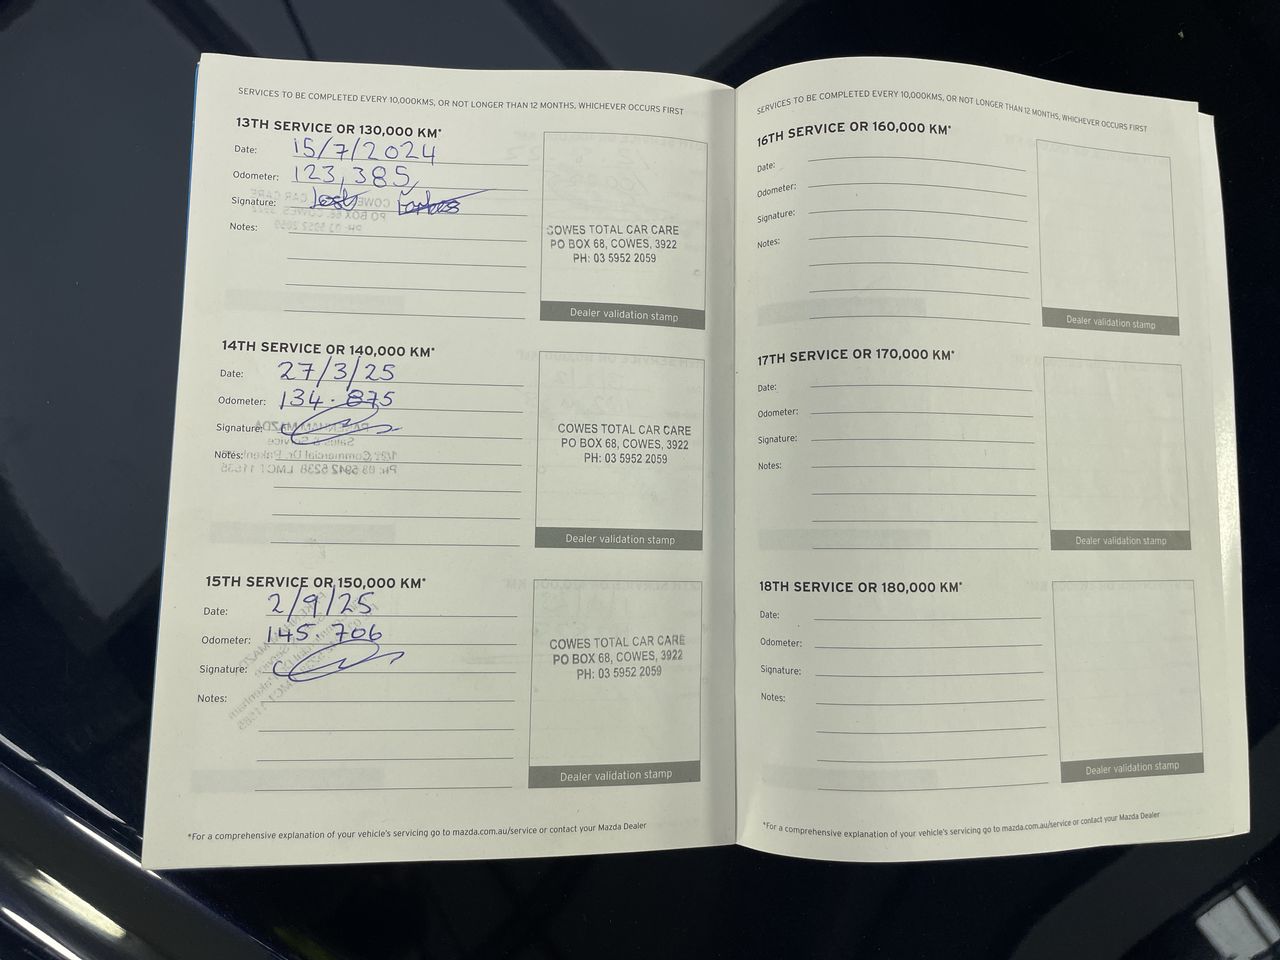 SERVICES TO BE COMPLETED EVERY 10,000KMS, OR NOT LONGER THAN 12 MONTHS, WHICHEVER OCCURS FIRST
13TH SERVICE OR 130,000 KM*
Date: 15/7/2024
Odometer: 123,385
Signature:
Notes:
COWES TOTAL CAR CARE
PO BOX 68, COWES, 3922
PH: 03 5952 2059
Dealer validation stamp
14TH SERVICE OR 140,000 KM*
Date: 27/3/25
Odometer: 134.875
Signature:
Notes:
COWES TOTAL CAR CARE
PO BOX 68, COWES, 3922
PH: 03 5952 2059
Dealer validation stamp
15TH SERVICE OR 150,000 KM*
Date: 2/9/25
Odometer: 145 706
Signature:
Notes:
COWES TOTAL CAR CARE
PO BOX 68, COWES, 3922
PH: 03 5952 2059
Dealer validation stamp
*For a comprehensive explanation of your vehicle's servicing go to mazda.com.au/service or contact your Mazda Dealer
SERVICES TO BE COMPLETED EVERY 10,000KMS, OR NOT LONGER THAN 12 MONTHS, WHICHEVER OCCURS FIRST
16TH SERVICE OR 160,000 KM*
Date:
Odometer:
Signature:
Notes:
Dealer validation stamp
17TH SERVICE OR 170,000 KM*
Date:
Odometer:
Signature:
Notes:
Dealer validation stamp
18TH SERVICE OR 180,000 KM*
Date:
Odometer:
Signature:
Notes:
Dealer validation stamp
*For a comprehensive explanation of your vehicle's servicing go to mazda.com.au/service or contact your Mazda Dealer